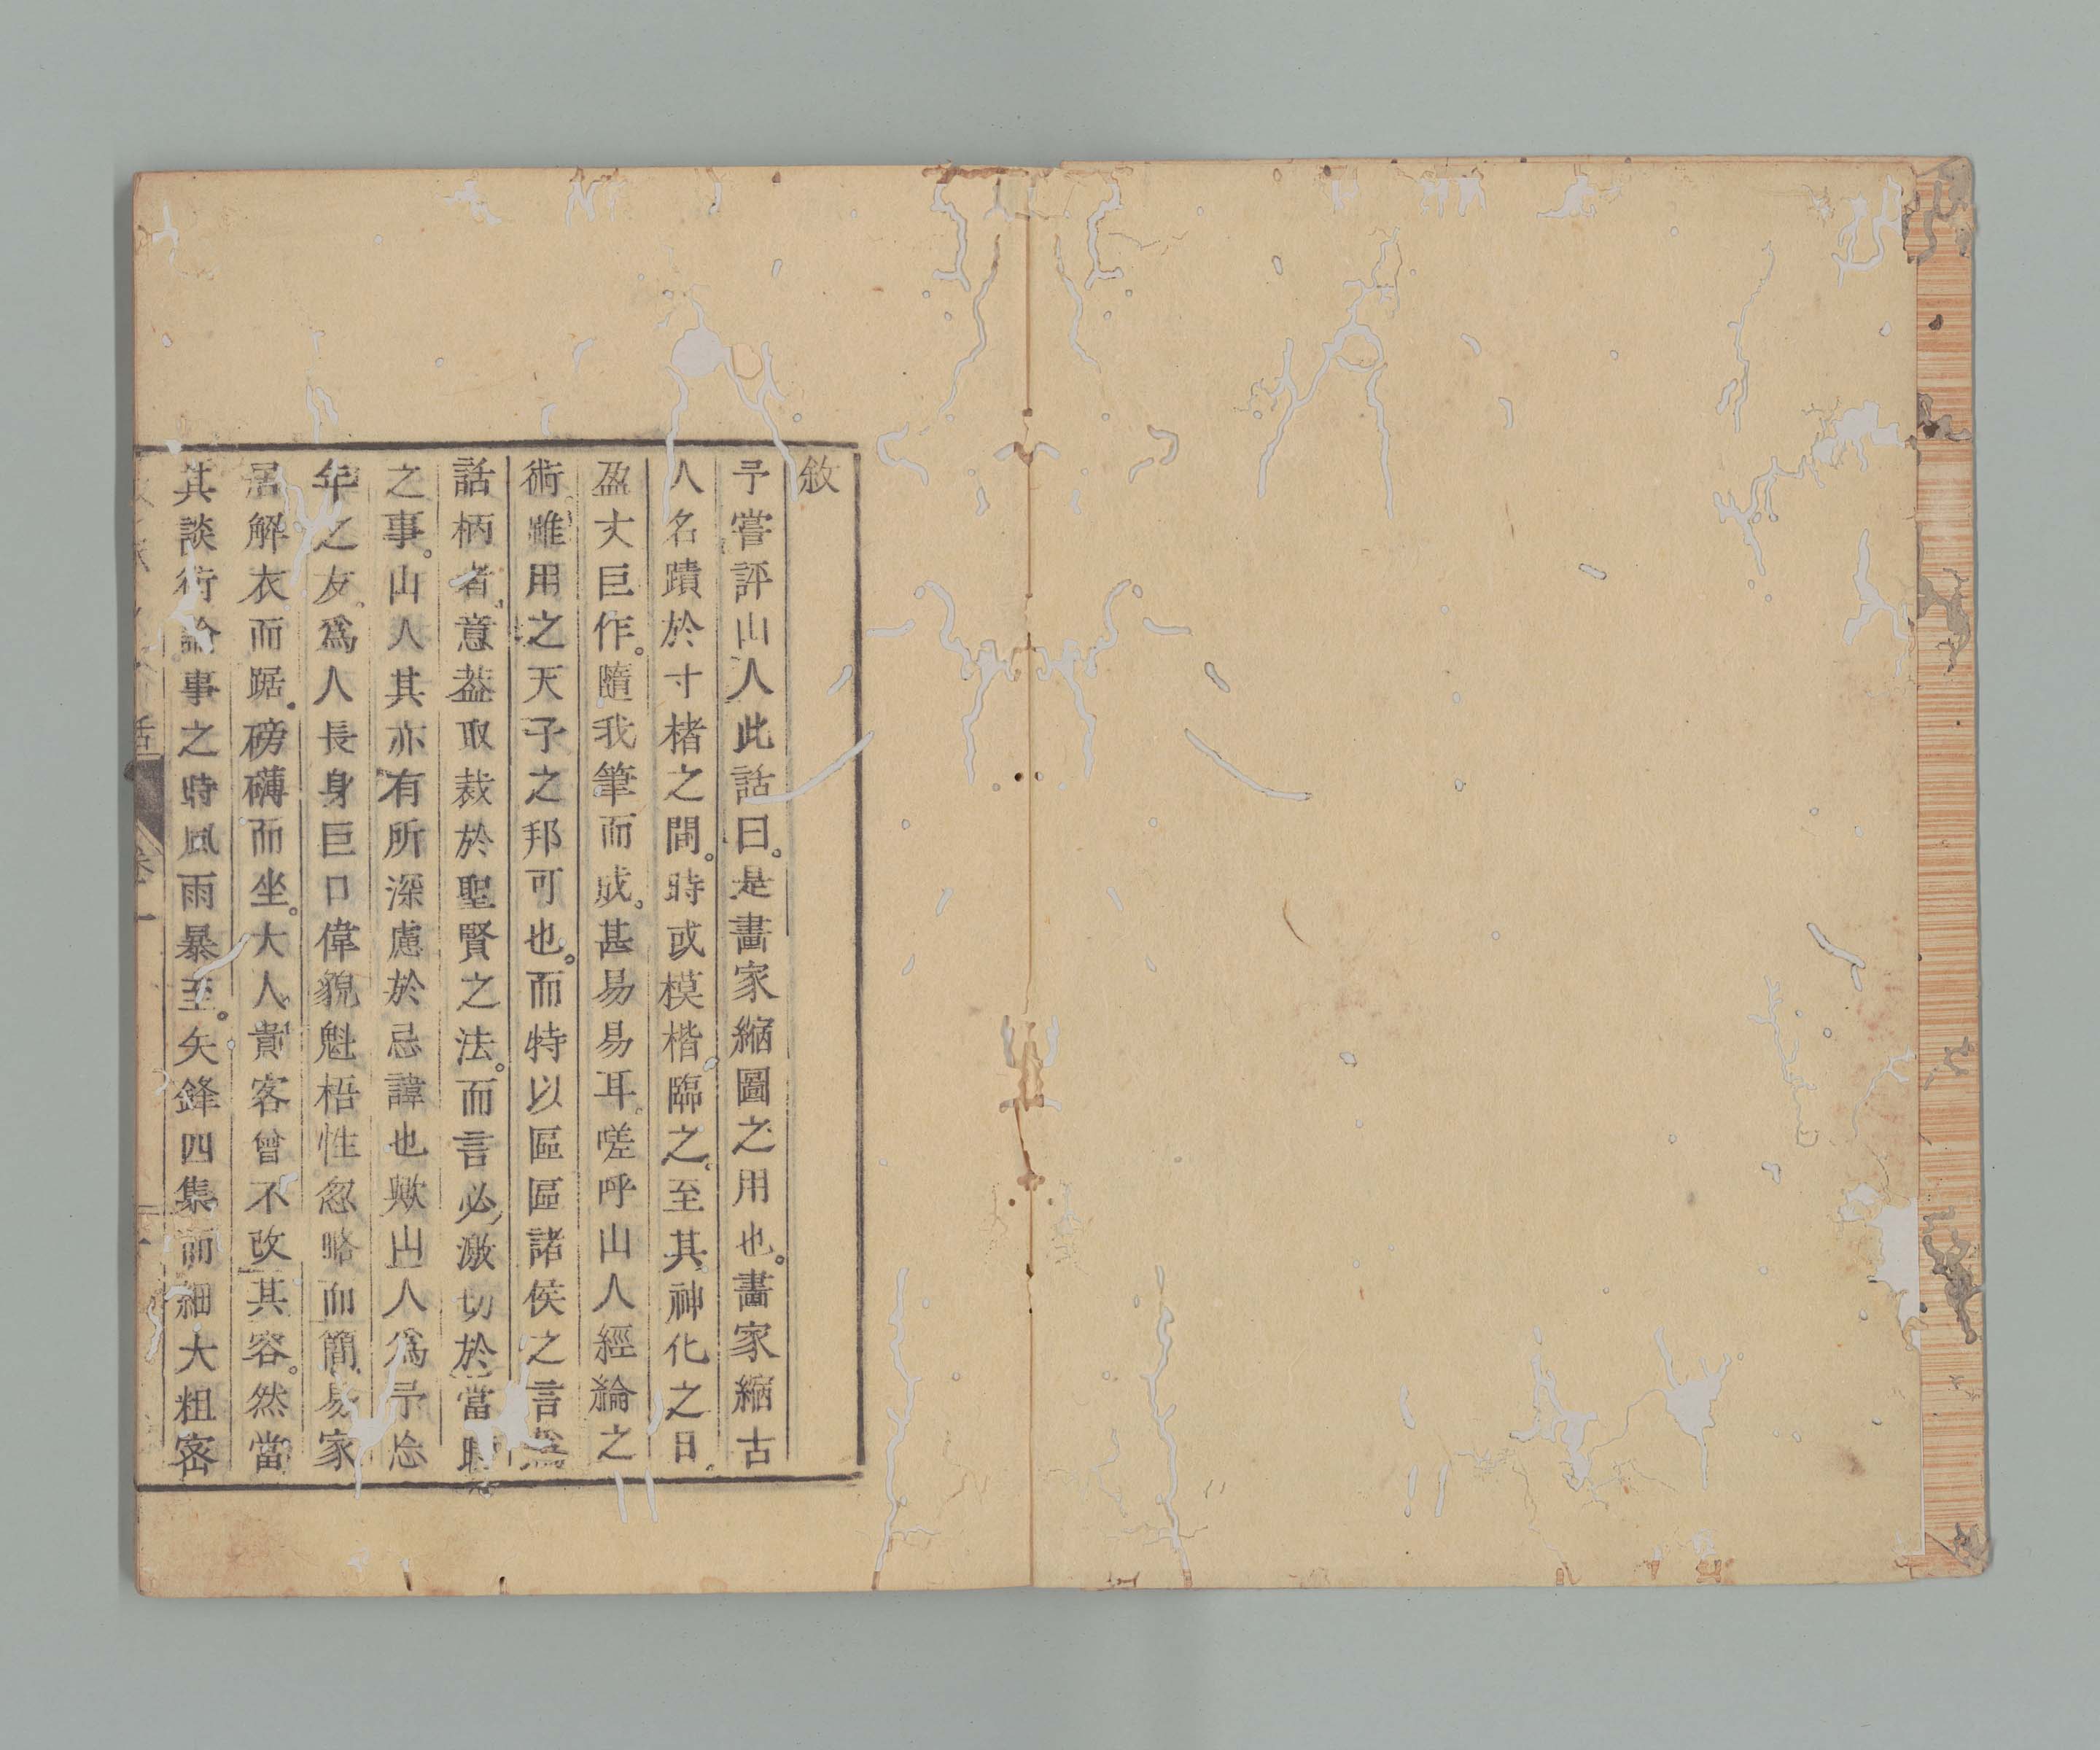 敘
予嘗評山人此話曰。是畫家縮圖之用也。畫家縮古
人名蹟於寸楮之間。時或模楷。臨之。至其神化之日。
盈丈巨作。隨我筆而成。甚易易耳。嗟呼山人經綸之
術。雖用之天子之邦可也。而特以區區諸侯之言為
話柄者。意葢取裁於聖賢之法。而言必激切於當時
之事。山人其亦有所深慮於忌諱也歟山人爲予忘
年之友。爲人長身巨口偉貌魁梧性忽略而簡易家
居解衣而踞。磅礴而坐。大人貴客曾不改其容。然當
其談術論事之時風雨暴至。矢鋒四集而細大粗密
話 卷一